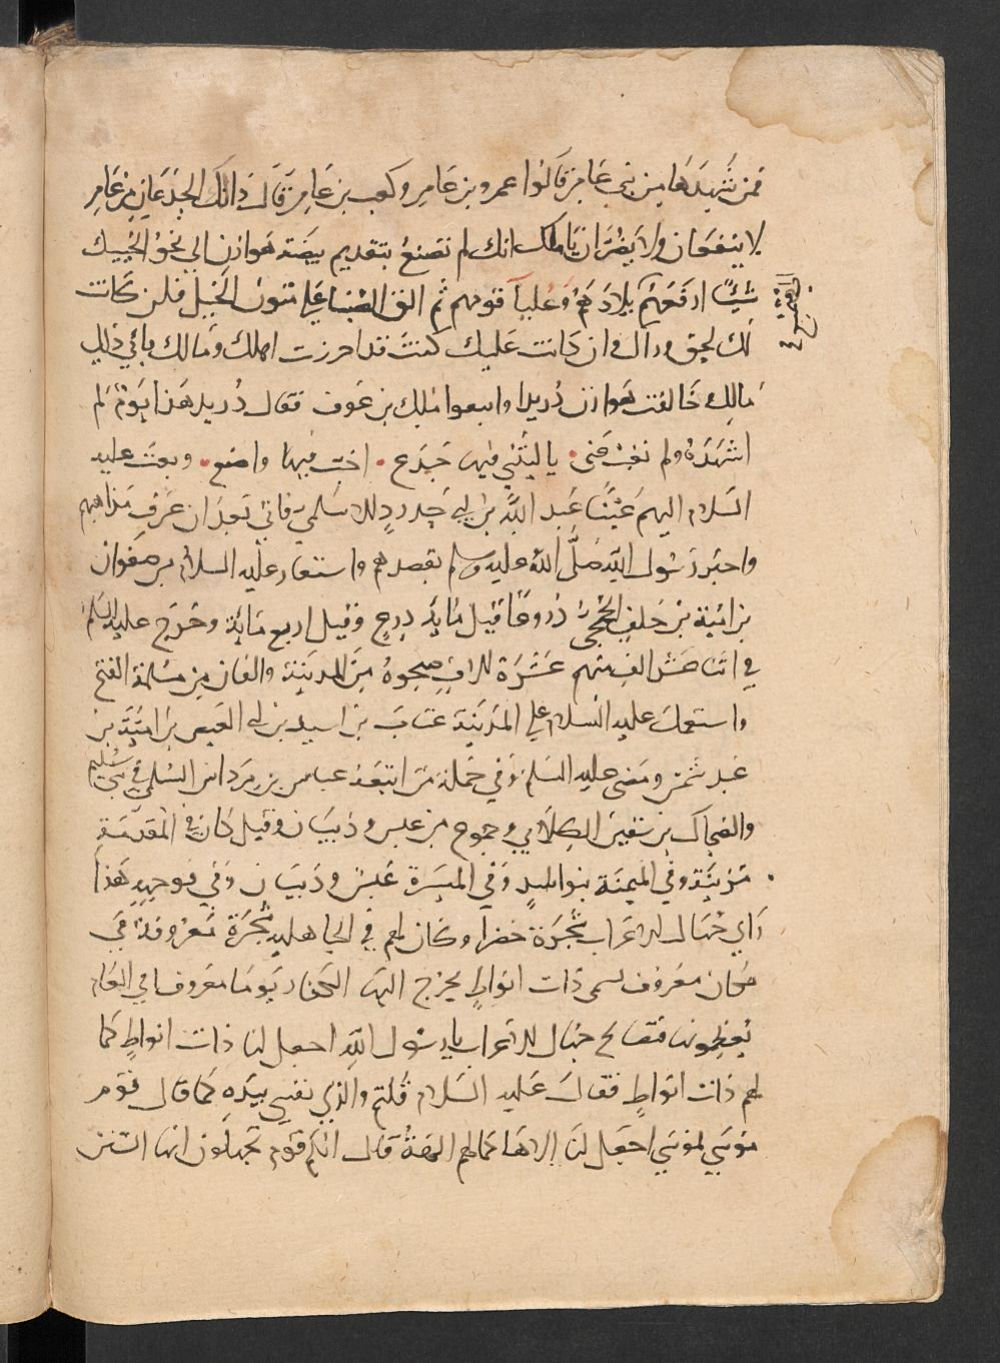 فمن شهدها من بني عامر قالوا عمرو بن عامر وكعب بن عامر قال ذانك الجذعان من عامر
لا ينفعان ولا يضران يا مالك انك لم تصنع بتقديم بيضة هوازن الي نحو الخيل
شيئا ارفعهم بلادهم وعليا قومهم ثم الق الصبا علي متون الخيل فان كانت
لك لحق وراك وان كانت عليك كنت قد احرزت اهلك ومالك يابي ذلك
مالك خالفت هوازن دريدا واتبعوا ملك بن عوف فقال دريد هذا يوم لم
اشهده ولم تفتني يا ليتني فيها جذع اخب فيها واضع وبعث عليه
السلام اليهم عينا عبد الله بن ابي حدرد الاسلمي فاتي بعد ان عرف مذاهبهم
واخبر رسول الله صلى الله عليه وسلم بقصدهم واستعار عليه السلام من صفوان
بن امية بن خلف الجمحي دروعا قيل ماية درع وقيل اربع ماية وخرج عليه السلم
في اثنا عشر الف منهم عشرة الاف صحبوه من المدينة والفان من مسلمة الفتح
واستعمل عليه السلام علي المدينة عتاب بن اسيد بن ابي العيص بن امية بن
عبد شمس ومضي عليه السلم وفي جملة من اتبعه عباس بن مرداس السلمي في بني سليم
والضحاك بن سفين الكلابي وجموع من عبس وذبيان وقيل كان في المقدمة
مزينة وفي الميمنة بنو اسد وفي الميسرة عبس وذبيان وفي توجهه هذا
راي جهال الاعراب شجرة خضرا وكان لهم في الجاهلية شجرة معروفة في
مكان معروف تسمى ذات انواط يخرج اليها الكفار يوما معروفا في العام
يعظمونها فقال جهال الاعراب يا رسول الله اجعل لنا ذات انواط كما
لهم ذات انواط فقال عليه السلام قلتم والذي نفسي بيده كما قال قوم
موسي لموسي اجعل لنا الاها كما لهم الهة قال انكم قوم تجهلون انها السنن